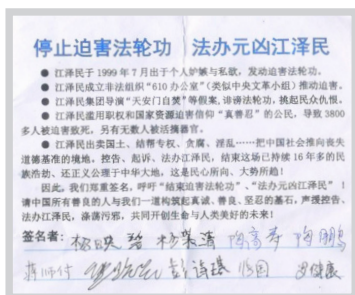 停止迫害法轮功 法办元凶江泽民
● 江泽民于1999年7月出于个人妒嫉与私欲，发动迫害法轮功。
● 江泽民成立非法组织“610办公室”（类似中央文革小组）推动迫害。
● 江泽民集团导演“天安门自焚”等假案，诽谤法轮功，挑起民众仇恨。
● 江泽民滥用职权和国家资源迫害信仰“真善忍”的公民，导致3800
多人被迫害致死，另有无数人被活摘器官。
● 江泽民出卖国土、结帮专权、贪腐、淫乱……把中国社会推向丧失
道德基准的境地。控告、起诉、法办江泽民，结束这场已持续16年多的民
族浩劫、还正义公理于中华大地，这是民心所向、大势所趋！
因此，我们郑重签名，呼吁“结束迫害法轮功”、“法办元凶江泽民”！
请中国所有善良的人与我们一道构筑起真诚、善良、坚忍的基石，声援控告、
法办江泽民，涤荡污邪，共同开创生命与人类美好的未来！
签名者：